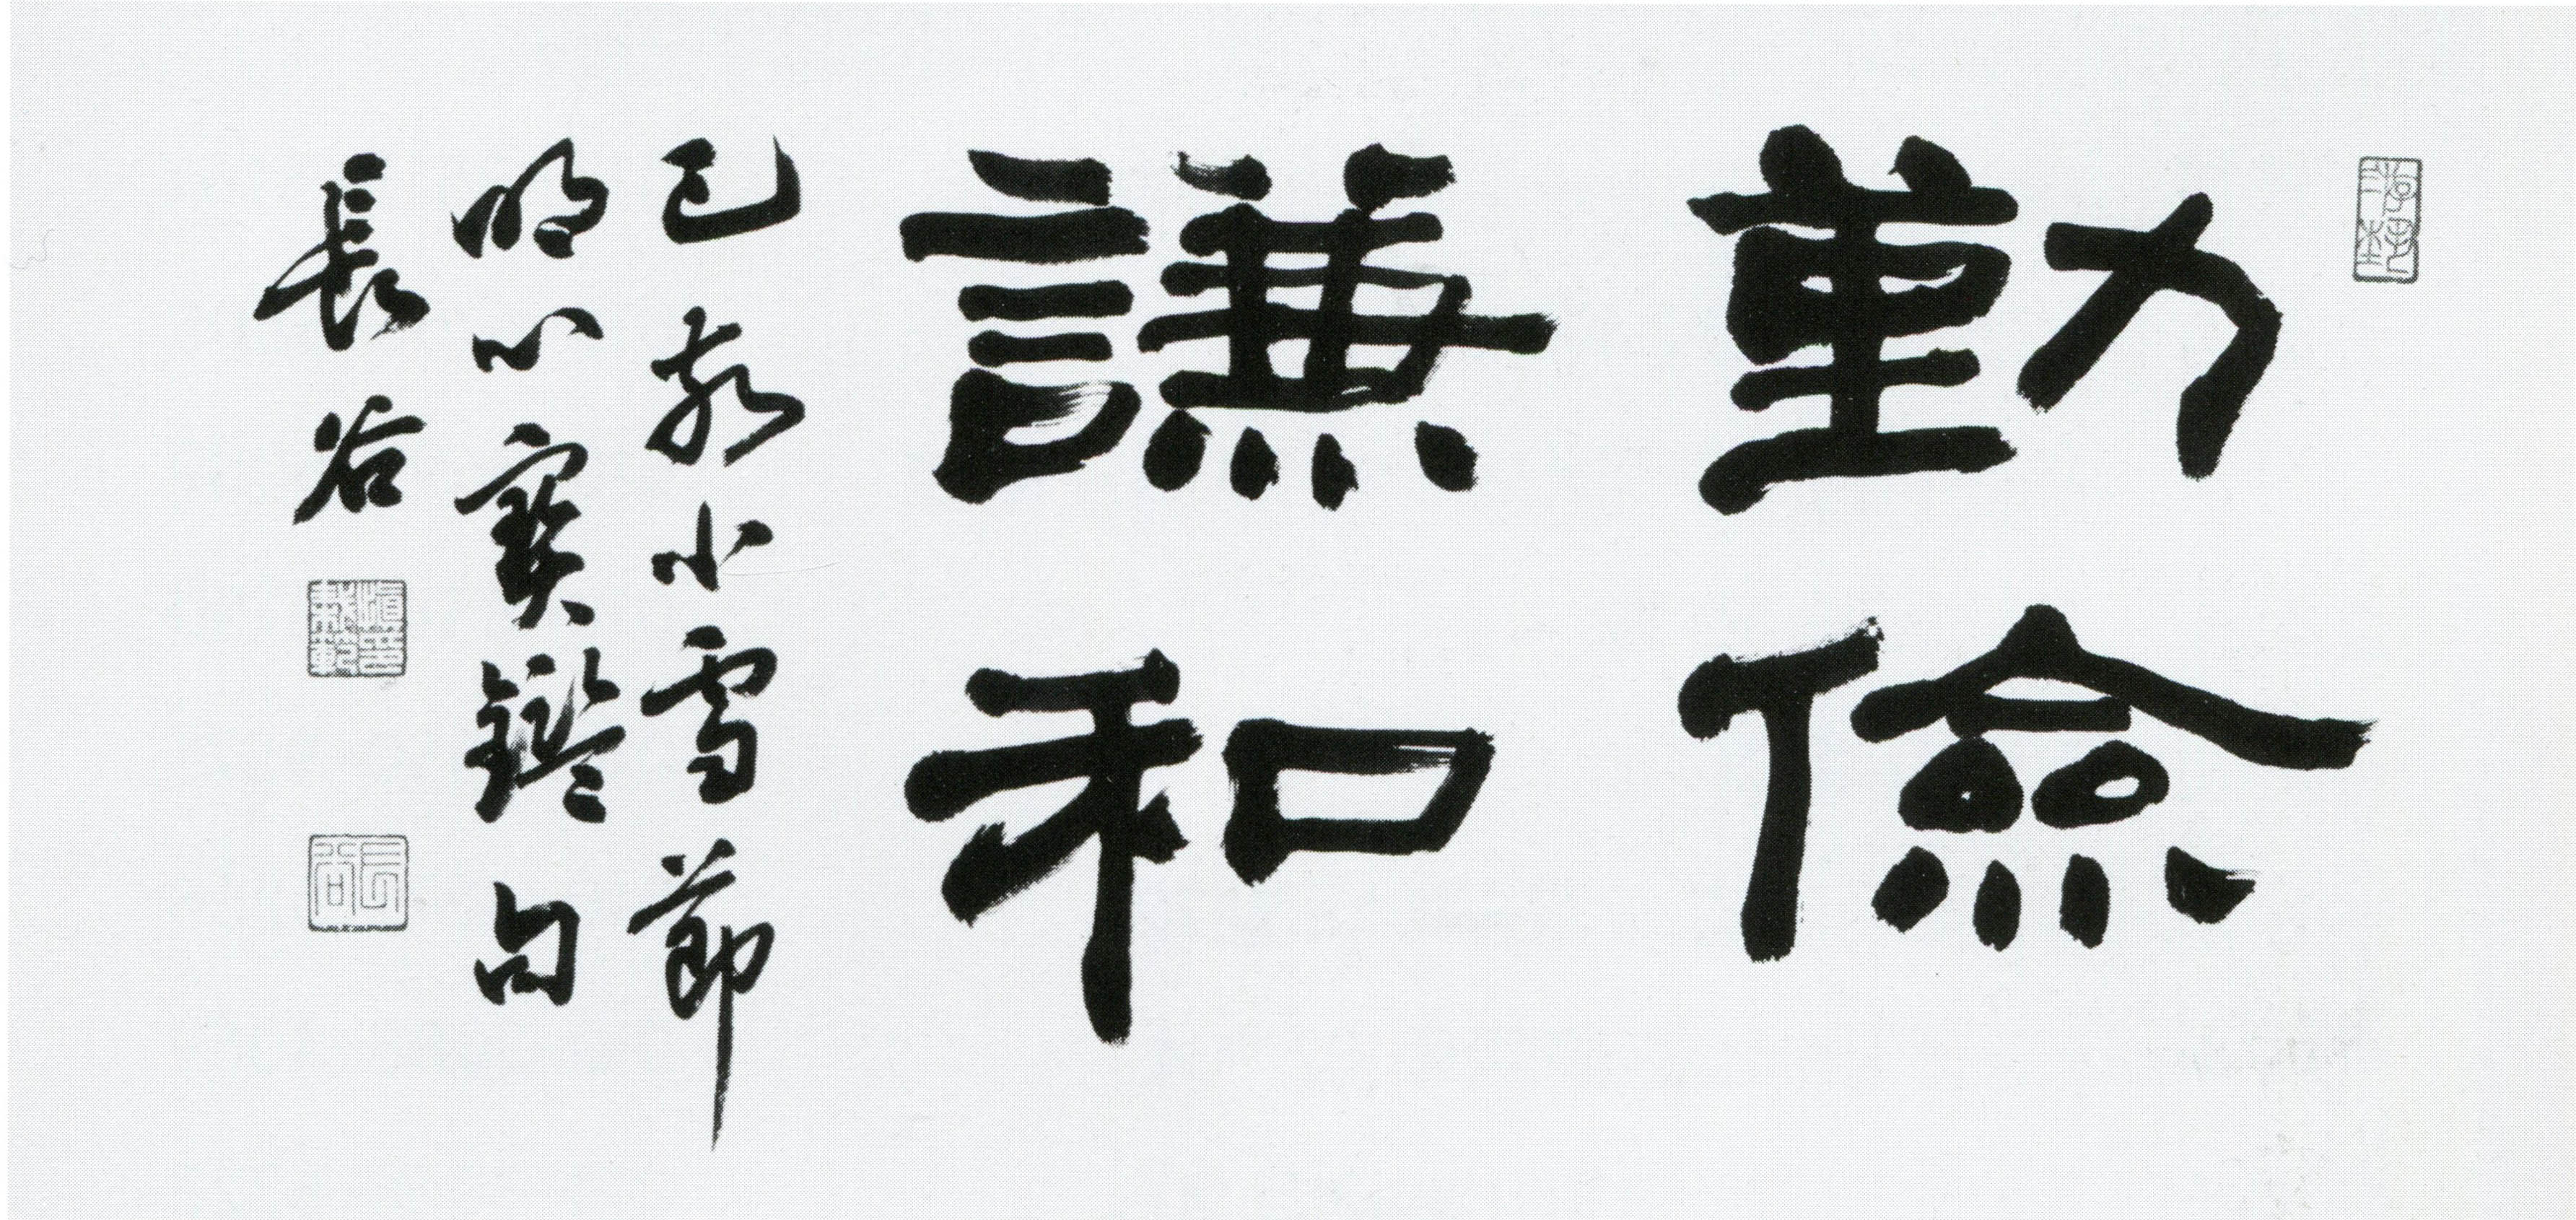 勤儉
謙和
己亥小雪節
明心寶鑑句
長谷